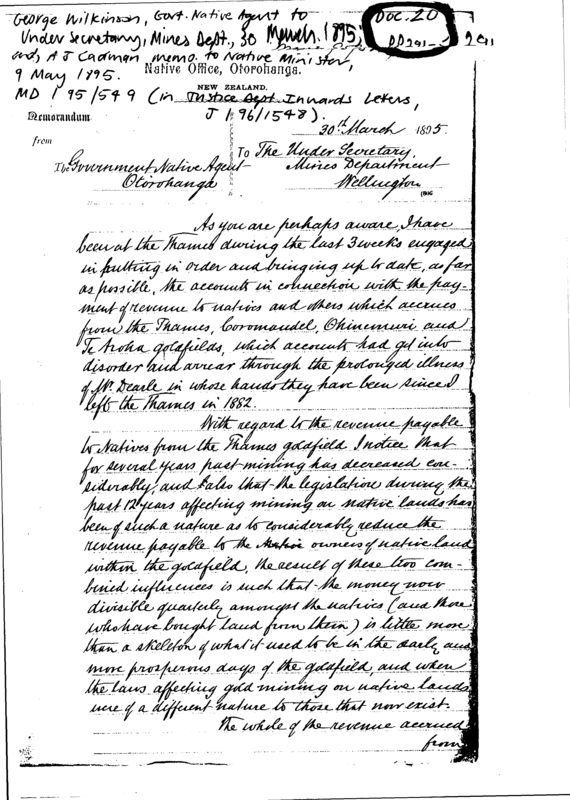 George Wilkinson, Govt. Native Agent to
Under Secretary, Mines Dept., 30 March 1895,
and, A J Cadman memo. to Native Minister,
9 May 1895.
DOC. 20
Native Office, Otorohanga.
NEW ZEALAND.
MD 1 95/549 (in Justice Dept Inwards Letters,
J 1 96/1548).
Memorandum
30th March 1895.
from
The Government Native Agent
Otorohanga
To The Under Secretary,
Mines Department
Wellington
As you are perhaps aware, I have
been at the Thames during the last 3 weeks engaged
in putting in order and bringing up to date, as far
as possible, the accounts in connection with the pay-
ment of revenue to natives and others which accrues
from the Thames, Coromandel, Ohinemuri and
Te Aroha goldfields, which accounts had got into
disorder and arrear through the prolonged illness
of Mr. Dearle in whose hands they have been since I
left the Thames in 1882.
With regard to the revenue payable
to Natives from the Thames goldfield I notice that
for several years past mining has decreased con-
siderably, and also that the legislation during the
past 12 years affecting mining on native lands has
been of such a nature as to considerably reduce the
revenue payable to the owners of native land
within the goldfield, the result of these two com-
bined influences is such that the money now
divisible quarterly amongst the natives (and those
who have bought land from them) is little more
than a skeleton of what it used to be in the early and
more prosperous days of the goldfield, and when
the laws affecting gold mining on native lands
were of a different nature to those that now exist.
The whole of the revenue accrued
from